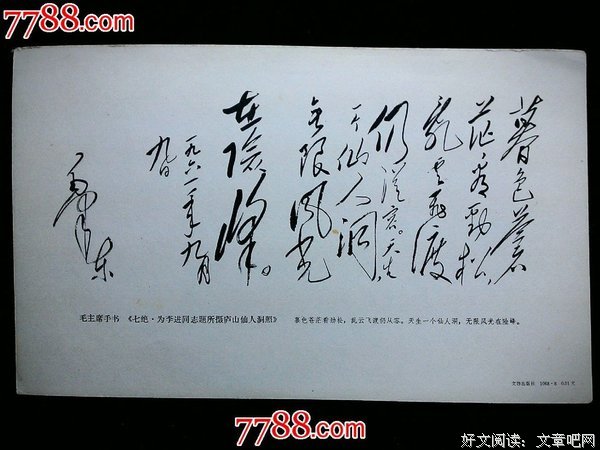 7788.com
7788.com
暮色苍
茫看劲松,
乱云飞渡
仍从容。天生
一个仙人洞,
无限风光
在险峰。
一九六一年九月
九日
毛泽东
毛主席手书 《七绝·为李进同志题所摄庐山仙人洞照》 暮色苍茫看劲松,乱云飞渡仍从容。天生一个仙人洞,无限风光在险峰。
文物出版社 1968·8 0.01元
7788.com
好文阅读:文章吧网